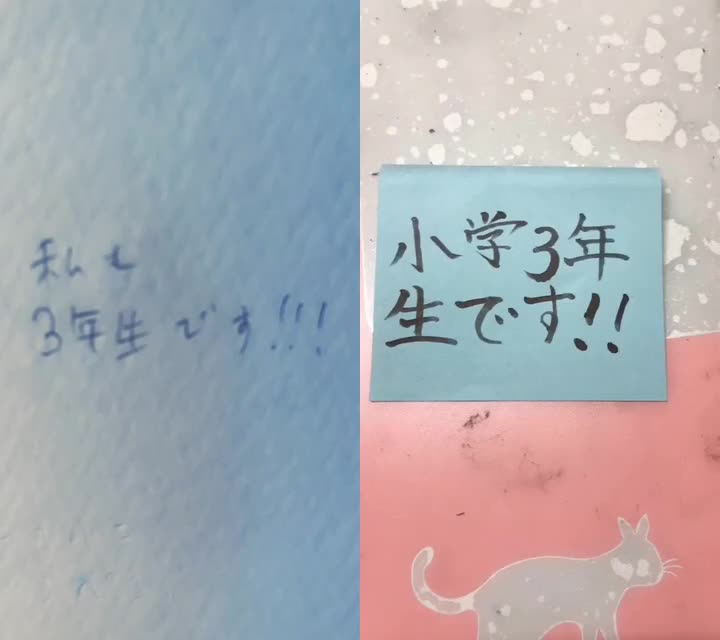 私も
3年生です!!!
小学3年
生です!!